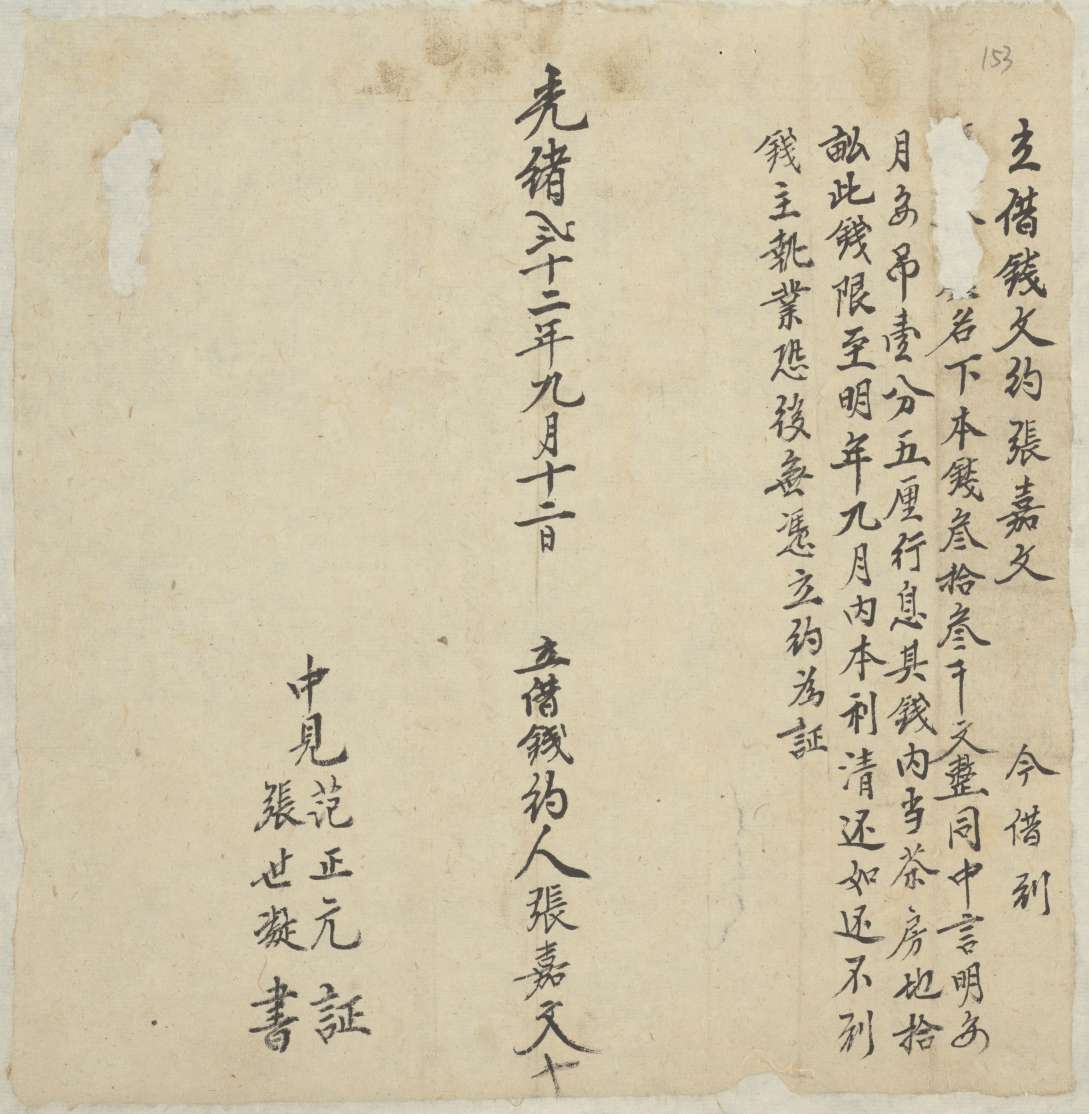 153
立借錢文約張嘉文 今借到
名下本錢叁拾叁千文整同中言明每
月每吊壹分五厘行息其錢内当茶房地拾
畆此錢限至明年九月内本利清还如还不到
錢主執業恐後無憑立約為証
光緒三十二年九月十二日 立借錢約人張嘉文十
中見范正元 証
張世凝 書